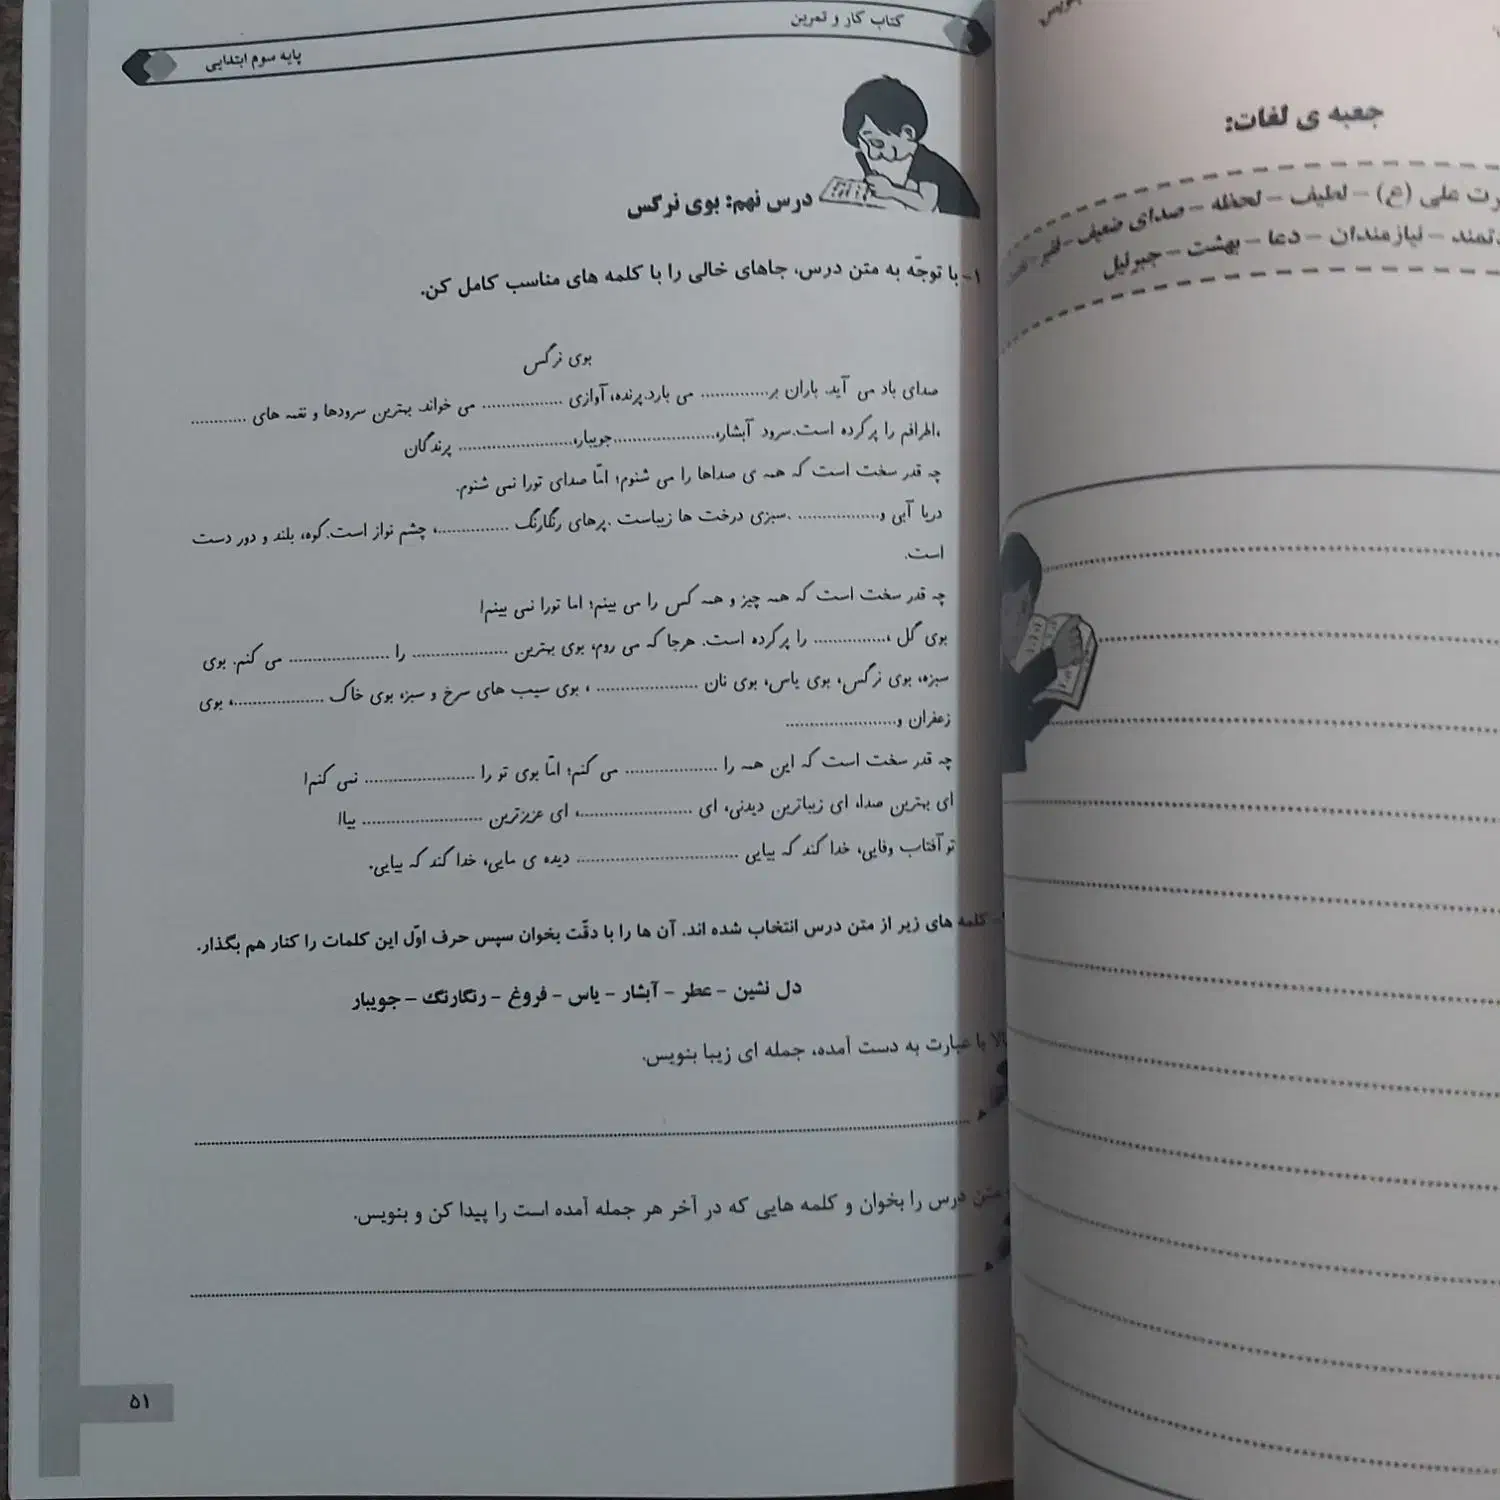 کتاب کار و تمرین
پایه سوم ابتدایی
درس نهم: بوی نرگس
۱- با توجّه به متن درس، جاهای خالی را با کلمه های مناسب کامل کن.
بوی نرگس
صدای باد می آید. باران بر............... می بارد.پرنده، آوازی .................. می خواند. بهترین سرودها و نغمه های ............
،اطرافم را پرکرده است.سرود آبشار،......................جویبار،......................... پرندگان
چه قدر سخت است که همه ی صداها را می شنوم؛ امّا صدای تورا نمی شنوم.
دریا آبی و.................. .سبزی درخت ها زیباست .پرهای رنگارنگ ................، چشم نواز است.کوه، بلند و دور دست
است.
چه قدر سخت است که همه چیز و همه کس را می بینم؛ اما تورا نمی بینم!
بوی گل ،................ را پرکرده است. هرجا که می روم، بوی بهترین ..................... را ...................... می کنم. بوی
سبزه، بوی نرگس، بوی یاس، بوی نان ....................... ، بوی سیب های سرخ و سبز، بوی خاک ....................، بوی
زعفران و........................
چه قدر سخت است که این همه را .................... می کنم؛ امّا بوی تو را ........................ نمی کنم!
ای بهترین صدا، ای زیباترین دیدنی، ای .........................، ای عزیزترین .......................... بیا!
تو آفتاب وفایی، خدا کند که بیایی ................................... دیده ی مایی، خدا کند که بیایی.
کلمه های زیر از متن درس انتخاب شده اند. آن ها را با دقّت بخوان سپس حرف اوّل این کلمات را کنار هم بگذار.
دل نشین - عطر - آبشار - یاس - فروغ - رنگارنگ - جویبار
با عبارت به دست آمده، جمله ای زیبا بنویس.
متن درس را بخوان و کلمه هایی که در آخر هر جمله آمده است را پیدا کن و بنویس.
۵۱
جعبه ی لغات:
علی (ع) - لطیف - لحظه - صدای ضعیف -
نیازمندان - دعا - بهشت - جبرئیل